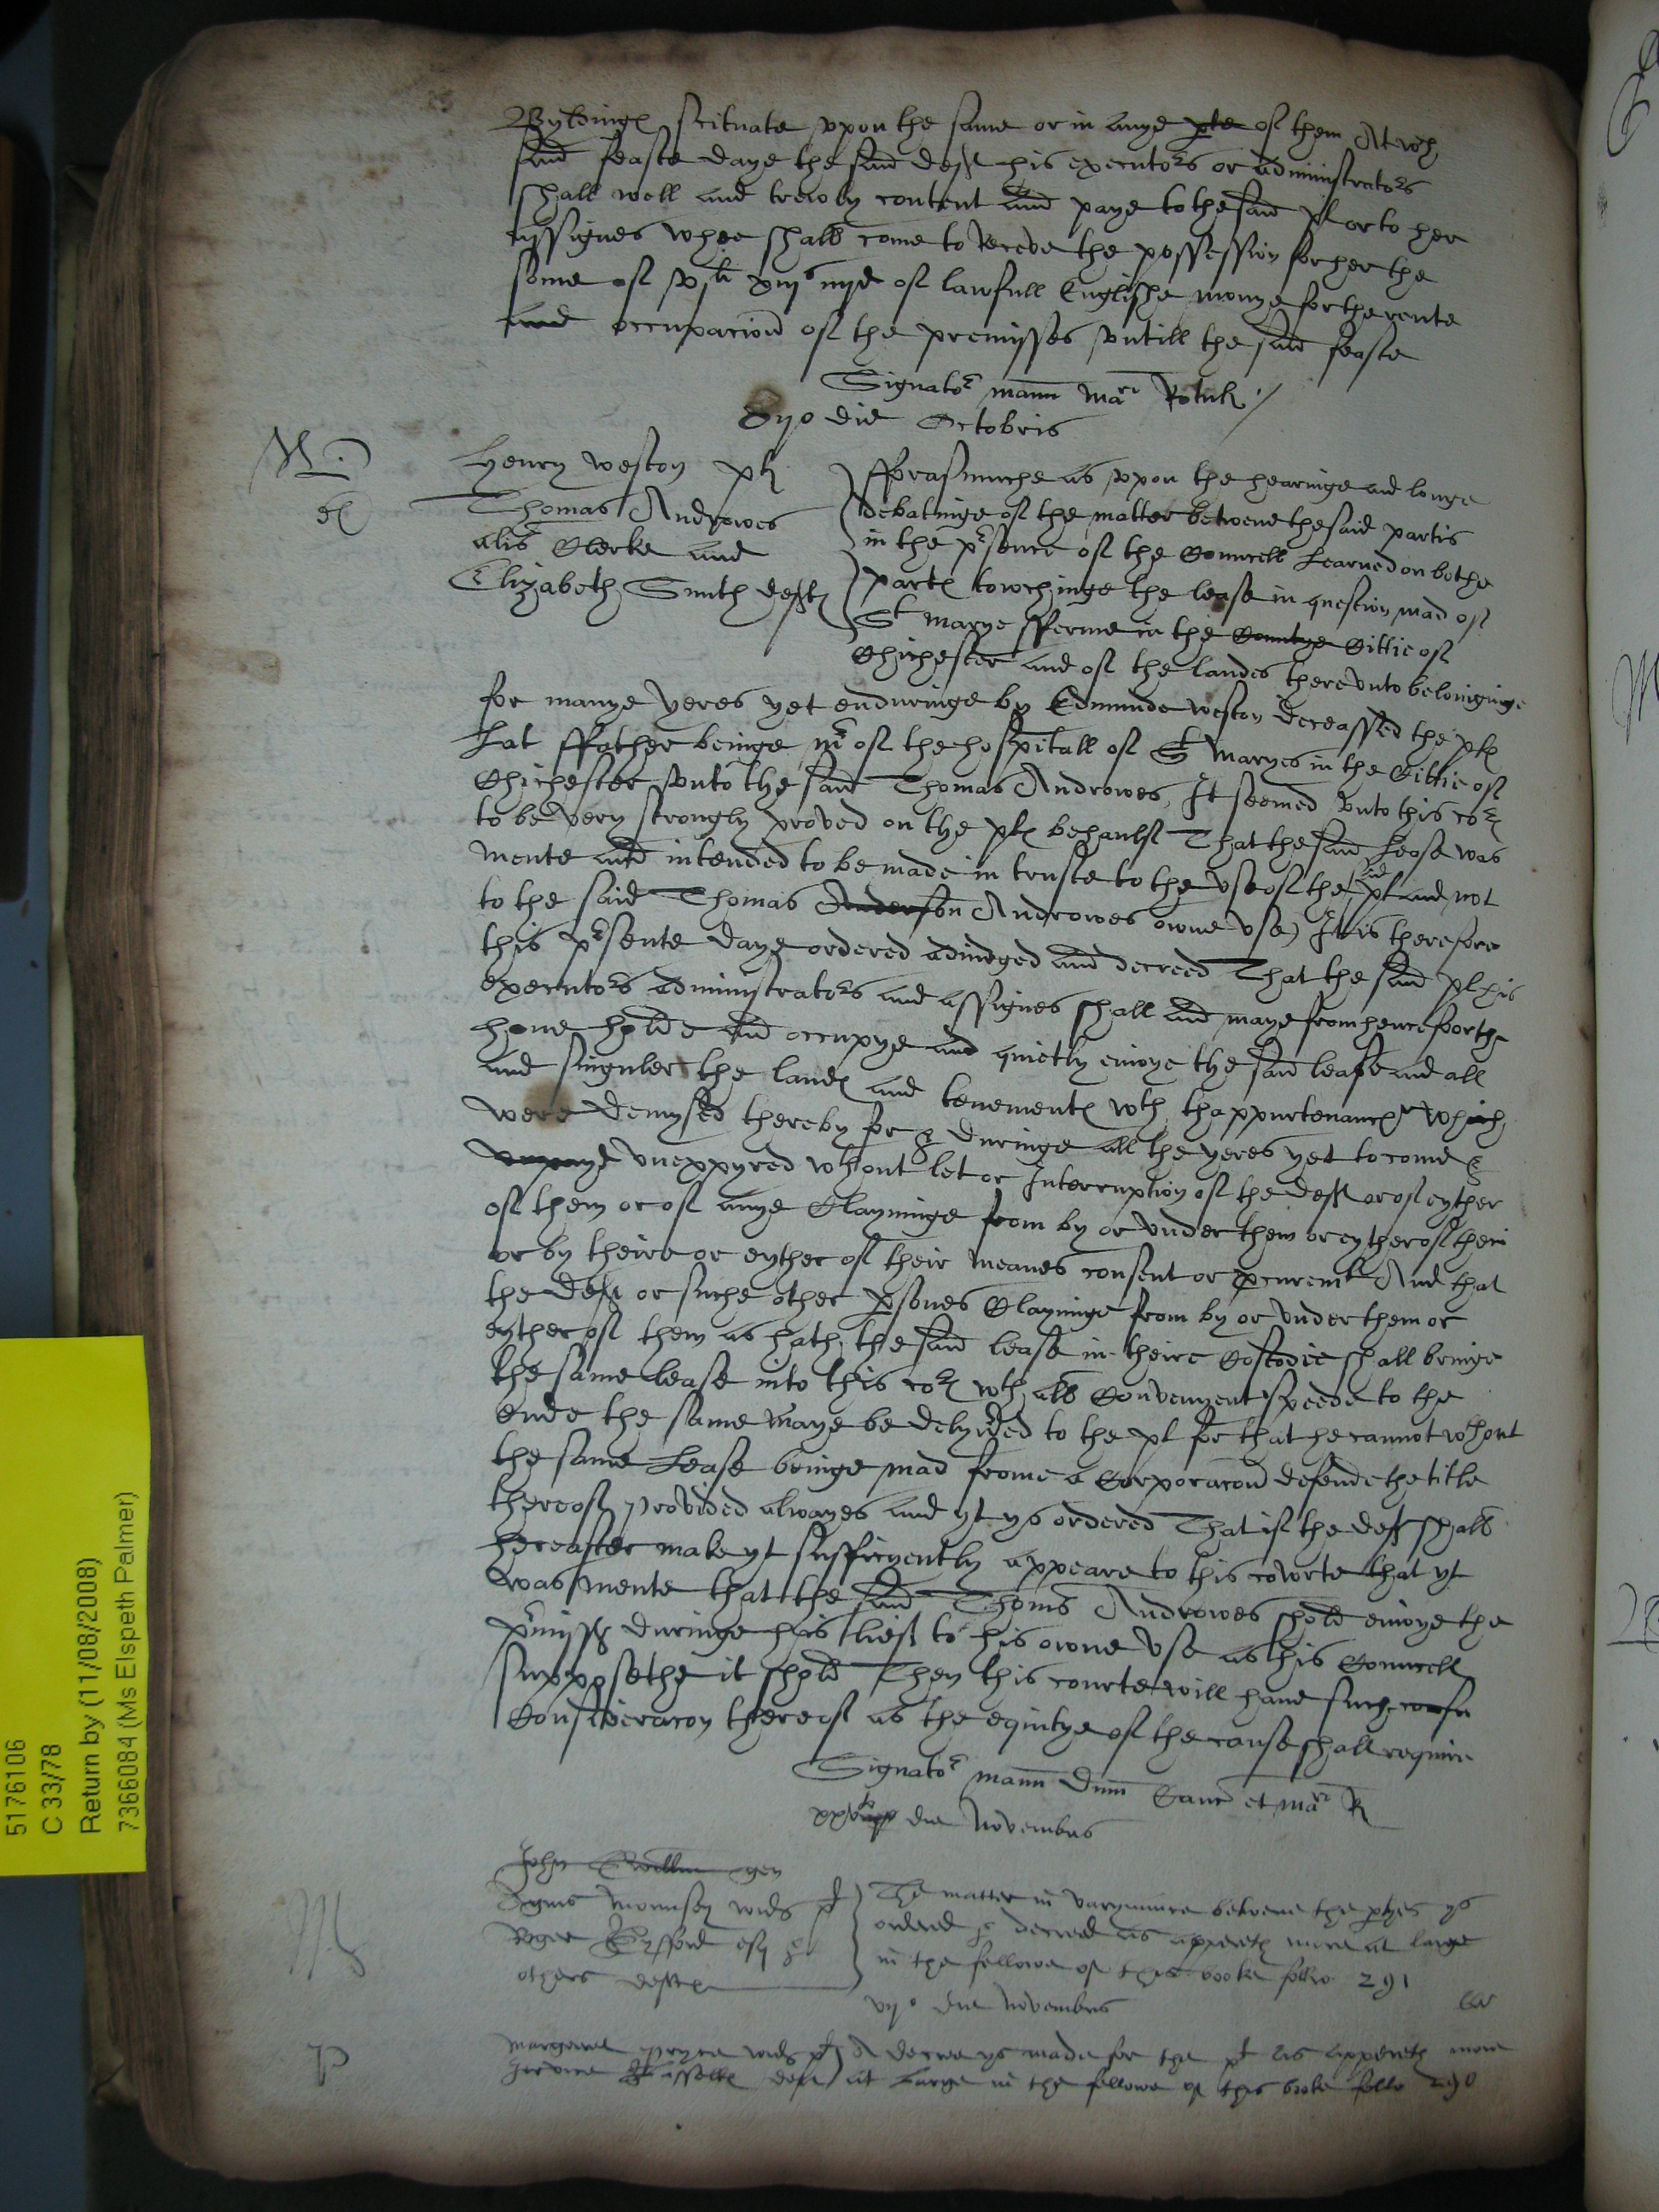 Byldinges scituate upon the same or in anye pte of them At wch
said feaste daye the said deft his executors or administrators
shall well and trewly content and paye to the said pl or to her
assignes whoe shall come to receve the possession for her the
some of xiijs iiijd of lawfull Englishe monye for the rente
and occupacion of the premisses untill the said feaste
Signator mann Mari Rotulor
die Octobris
Henry Weston pl
Thomas Androwes
alis Clerke and
Elizabeth Smith defts
fforasmuche as upon the hearinge and longe
debatinge of the matter betwene the said partis
in the prsence of the Councell Learned on bothe
partes towchinge the lease in question mad of
St Marye fferme in the Countye Cittie of
Chichester and of the landes thereunto belonginge
for manye yeres yet enduringe by Edmunde Weston deceassed the pls
Lat ffather beinge mr of the hospitall of St Maryes in the Cittie of
Chichester unto the said Thomas Androwes, It seemed unto this cort
to be very strongly proved on the pls behaulf That the said Lease was
mente and intended to be made in truste to the use of the said pl and not
to the said Thomas Anderson Androwes owne use) It is therefore
this prsente daye ordered adiudged and decreed That the said pl his
executors administrators and assignes shall and maye from hencefoorth
have holde and occupye and quietly enioye the said lease and all
and singuler the landes and tenementes wth thappurtenances which
were demysed thereby for & duringe all the yeres yet to come &
unexpyred wthout let or Interruption of the deft or of eyther
of them or of anye Clayminge from by or under them or eyther of them
or by theire or eyther of their meanes consent or pcuremt And that
the deft or suche other psones Clayminge from by or under them or
eyther of them as hath the said lease in theire Costodie shall bringe
the same lease into this cort wth all Convenyent speede to the
Ende the same maye be delyvred to the pl for that he cannot wthout
the same Lease beinge mad frome a Corporacon defende the title
thereof Provided alwayes and yt ys ordered That if the deft shall
hereafter make yt sufficyently appeare to this cowrte that yt
was mente that the said Thoms Androwes shold enioye the
prmisses duringe his lief to his owne use as his Councell
supposethe it shold Then this courte will have such consi
Consideracon thereof as the equitye of the cause shall require
Signator mann Dnni Canc et Mari R
die Novembris
John gen
Agnes wido pl
Roger Gyfford esq &
others defts
The matter in varyaunce betwene the ptyes ys
ordered & decreed as appereth more at large
in the followe of this booke follio 291
vijo die Novembris
Margaret Pryce wido pl
deft
A decree ys made for the pl as appereth more
at Large in the followe of this boke follo 290
5176106
C 33/78
Return by (11/08/2008)
7366084 (Ms Elspeth Palmer)